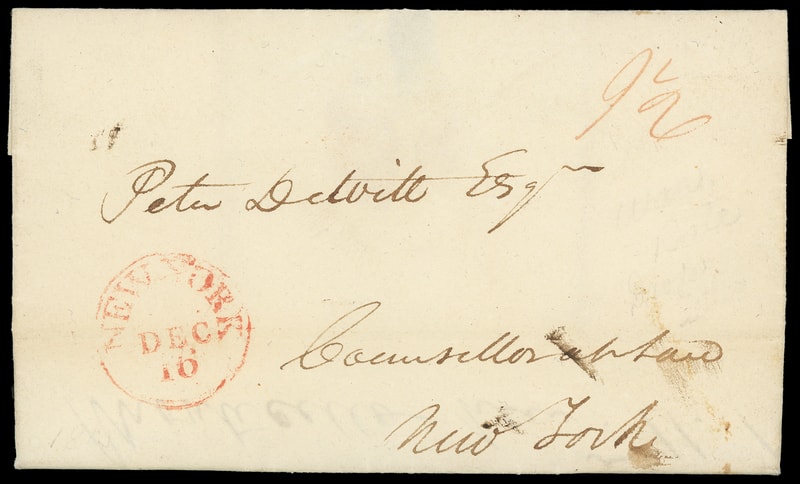 9½
Peter DeWitt Esqr
NEW-YORK
DEC
16
Counsellor at Law
New York